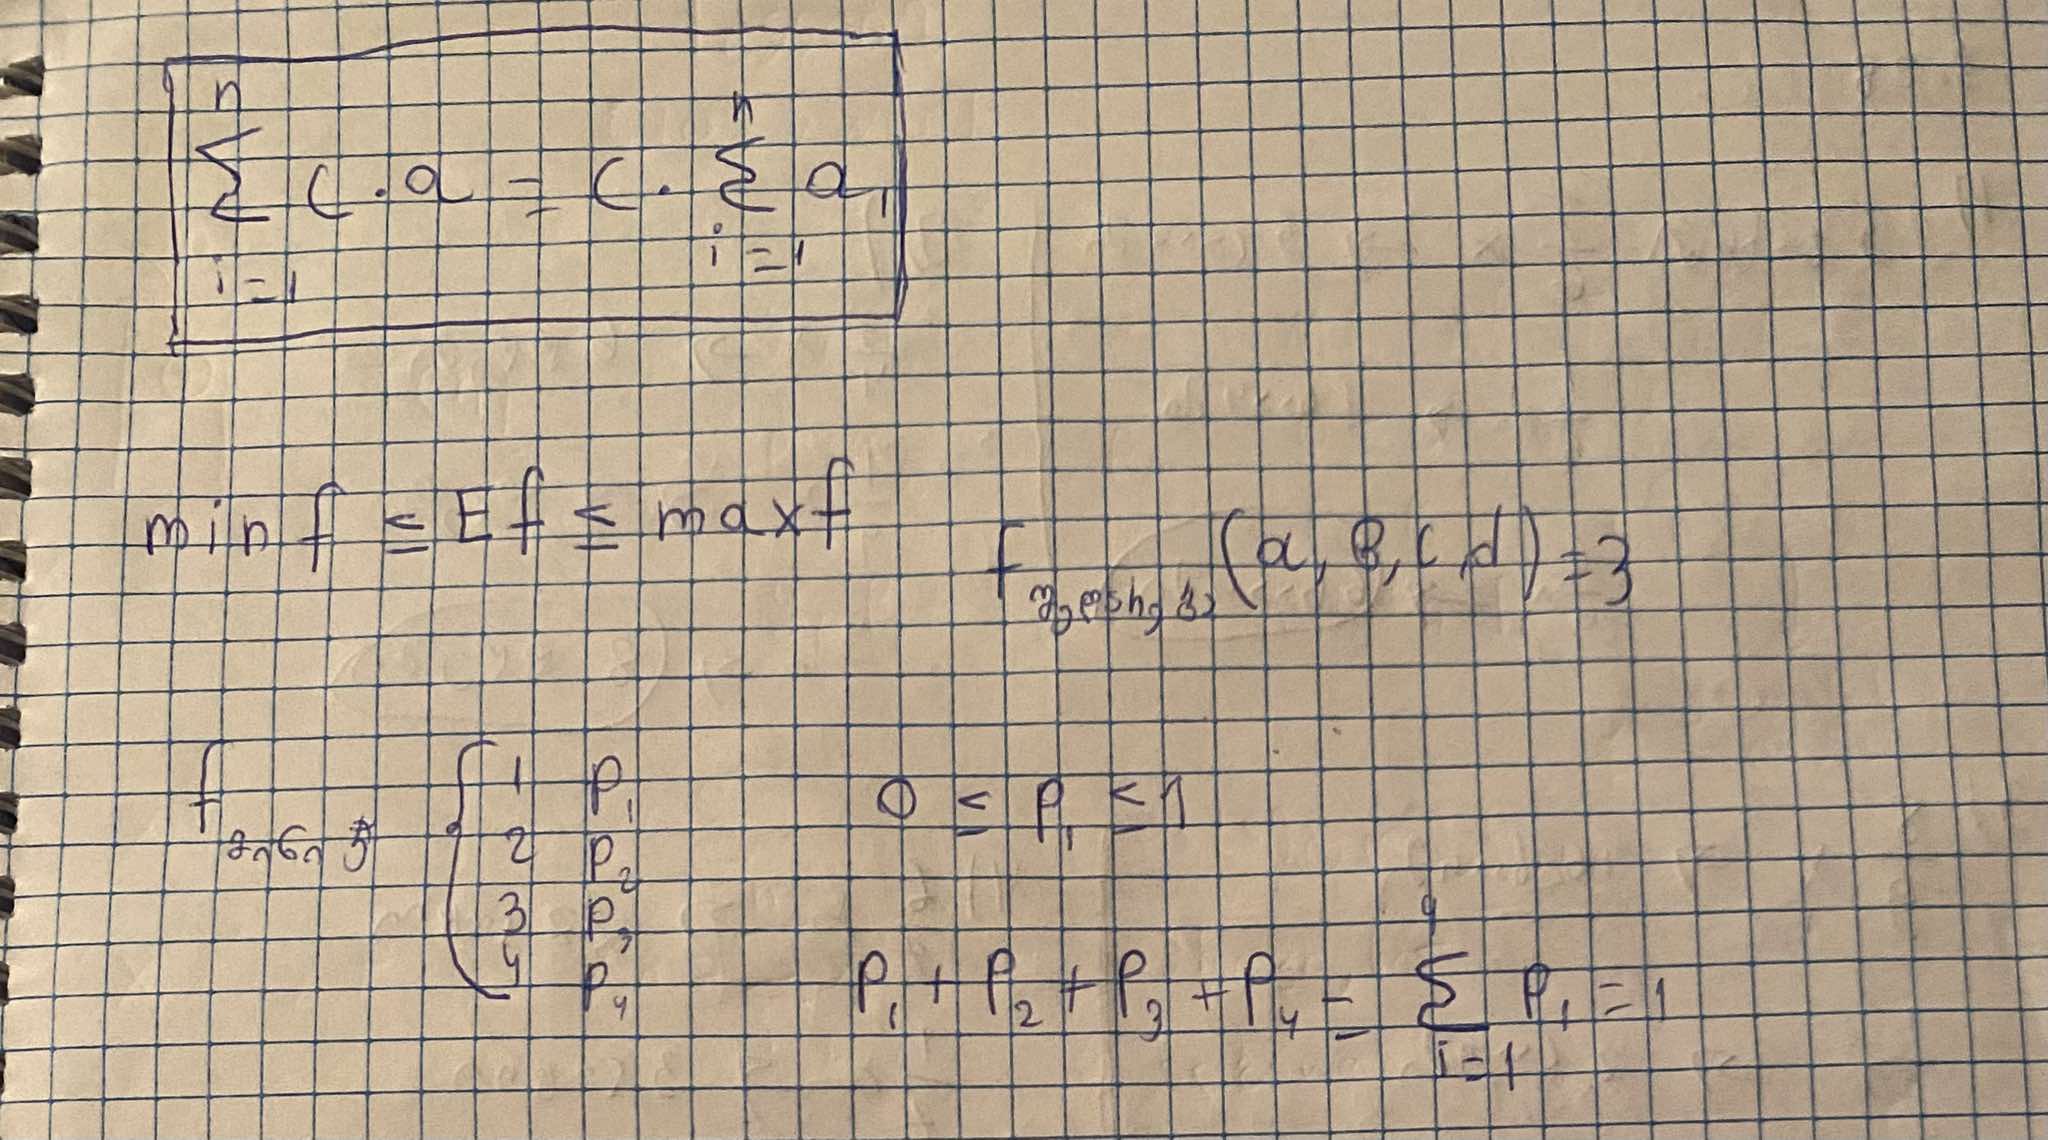 n n
Σ c · a = c · Σ a₁
i=1 i=1
min f ≤ E f ≤ max f
f (a, B, c, d) = 3
f { 1 P₁
2 P₂
3 P₃
4 P₄
0 ≤ P₁ ≤ 1
P₁ + P₂ + P₃ + P₄ = Σ P₁ = 1
i=1